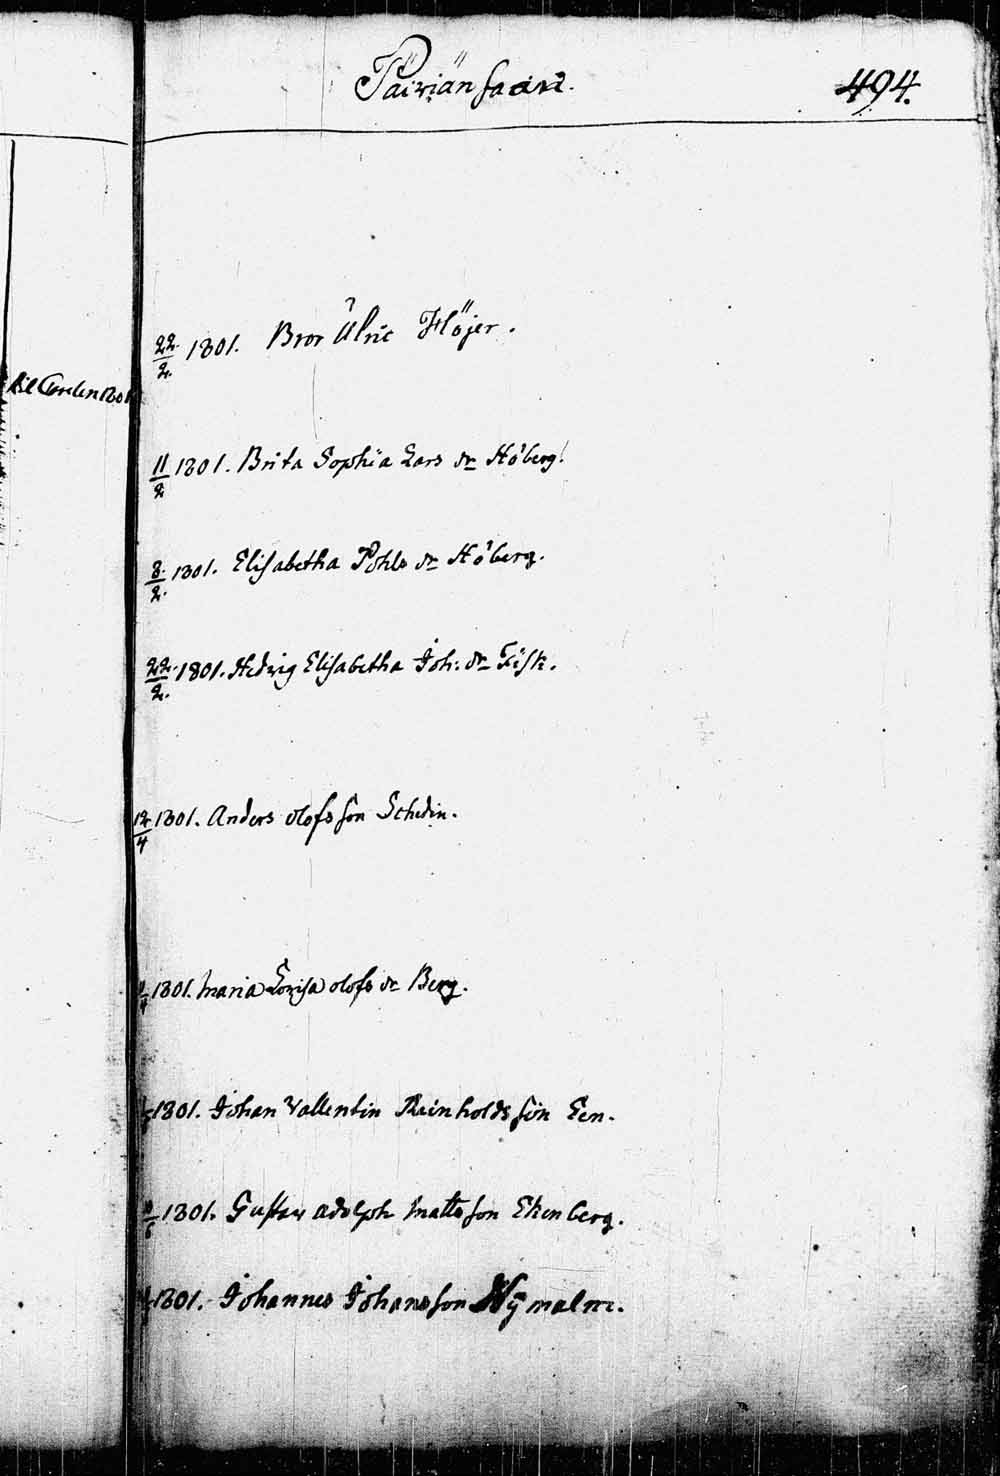 Päiviänsaari.
494.
22/2. 1801. Bror Ulric Höjer.
11/2 1801. Brita Sophia Lars dr Höberg.
8/2. 1801. Elisabetha Pohls dr Höberg.
22/2. 1801. Hedvig Elisabetha Joh: dr Fisk.
12/4 1801. Anders olofs son Schedin.
1801. Maria Lovisa olofs dr Berg.
1801. Johan Vallentin Reinholds son Een.
1801. Gustav adolph Matts son Ekenberg.
1801. Johannes Johans son Nymalm.